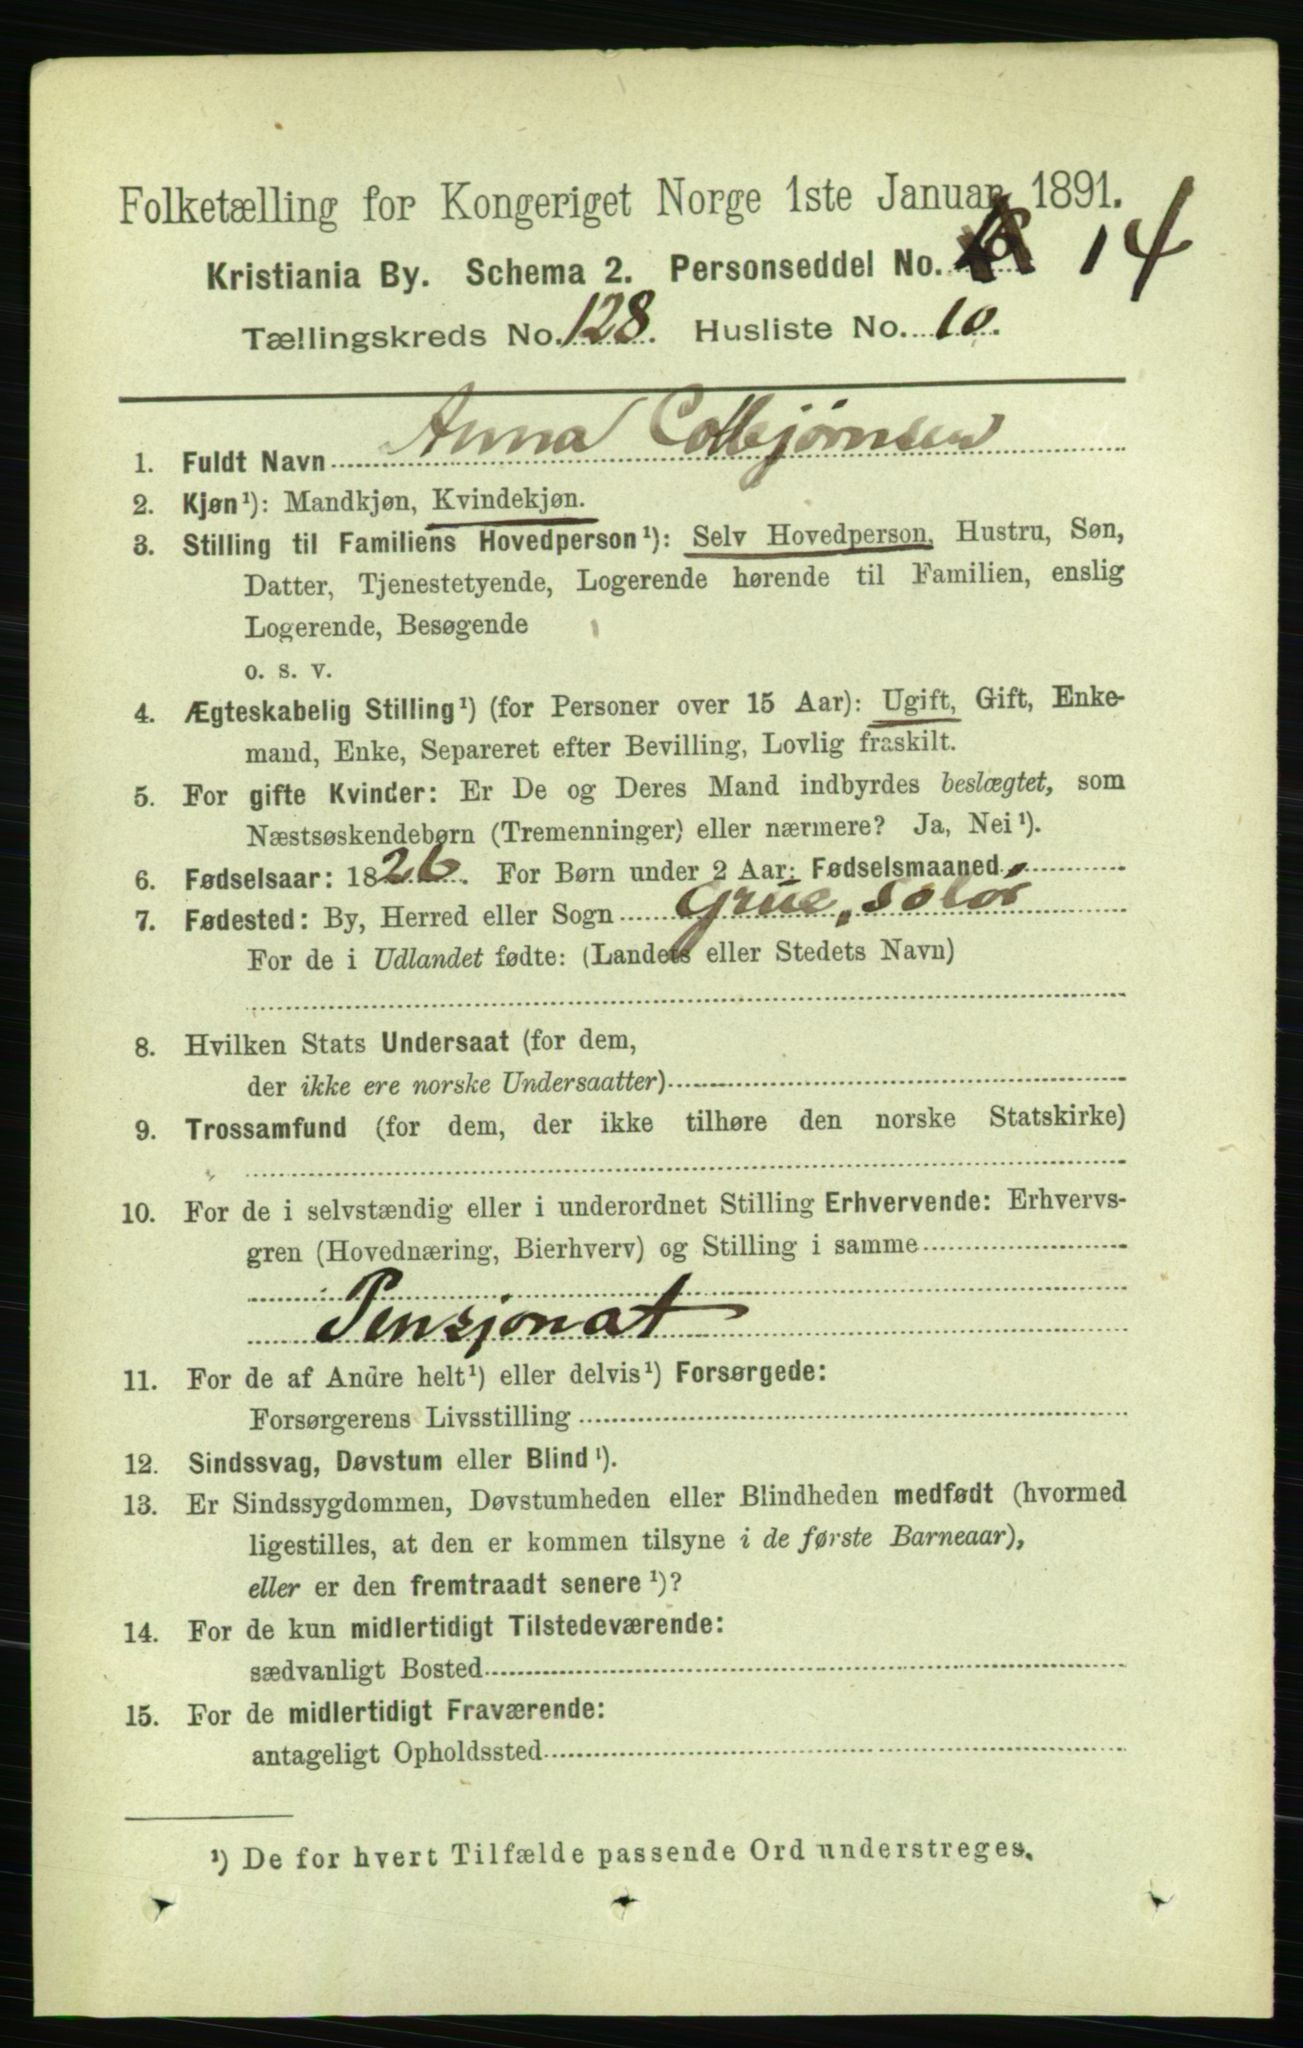 Folketælling for Kongeriget Norge 1ste Januar 1891.
Kristiania By. Schema 2. Personseddel No. 14
Tællingskreds No. 128. Husliste No. 10.
1. Fuldt Navn Anna Colbjørnsen
2. Kjøn¹): Mandkjøn, Kvindekjøn.
3. Stilling til Familiens Hovedperson¹): Selv Hovedperson, Hustru, Søn,
Datter, Tjenestetyende, Logerende hørende til Familien, enslig
Logerende, Besøgende
o. s. v.
4. Ægteskabelig Stilling¹) (for Personer over 15 Aar): Ugift, Gift, Enke-
mand, Enke, Separeret efter Bevilling, Lovlig fraskilt.
5. For gifte Kvinder: Er De og Deres Mand indbyrdes beslægtet, som
Næstsøskendebørn (Tremenninger) eller nærmere? Ja, Nei¹).
6. Fødselsaar: 1826. For Børn under 2 Aar: Fødselsmaaned
7. Fødested: By, Herred eller Sogn Grue, Solør
For de i Udlandet fødte: (Landets eller Stedets Navn)
8. Hvilken Stats Undersaat (for dem,
der ikke ere norske Undersaatter)
9. Trossamfund (for dem, der ikke tilhøre den norske Statskirke)
10. For de i selvstændig eller i underordnet Stilling Erhvervende: Erhvervs-
gren (Hovednæring, Bierhverv) og Stilling i samme
Pensjonat
11. For de af Andre helt¹) eller delvis¹) Forsørgede:
Forsørgerens Livsstilling
12. Sindssvag, Døvstum eller Blind¹).
13. Er Sindssygdommen, Døvstumheden eller Blindheden medfødt (hvormed
ligestilles, at den er kommen tilsyne i de første Barneaar),
eller er den fremtraadt senere¹)?
14. For de kun midlertidigt Tilstedeværende:
sædvanligt Bosted
15. For de midlertidigt Fraværende:
antageligt Opholdssted
¹) De for hvert Tilfælde passende Ord understreges.